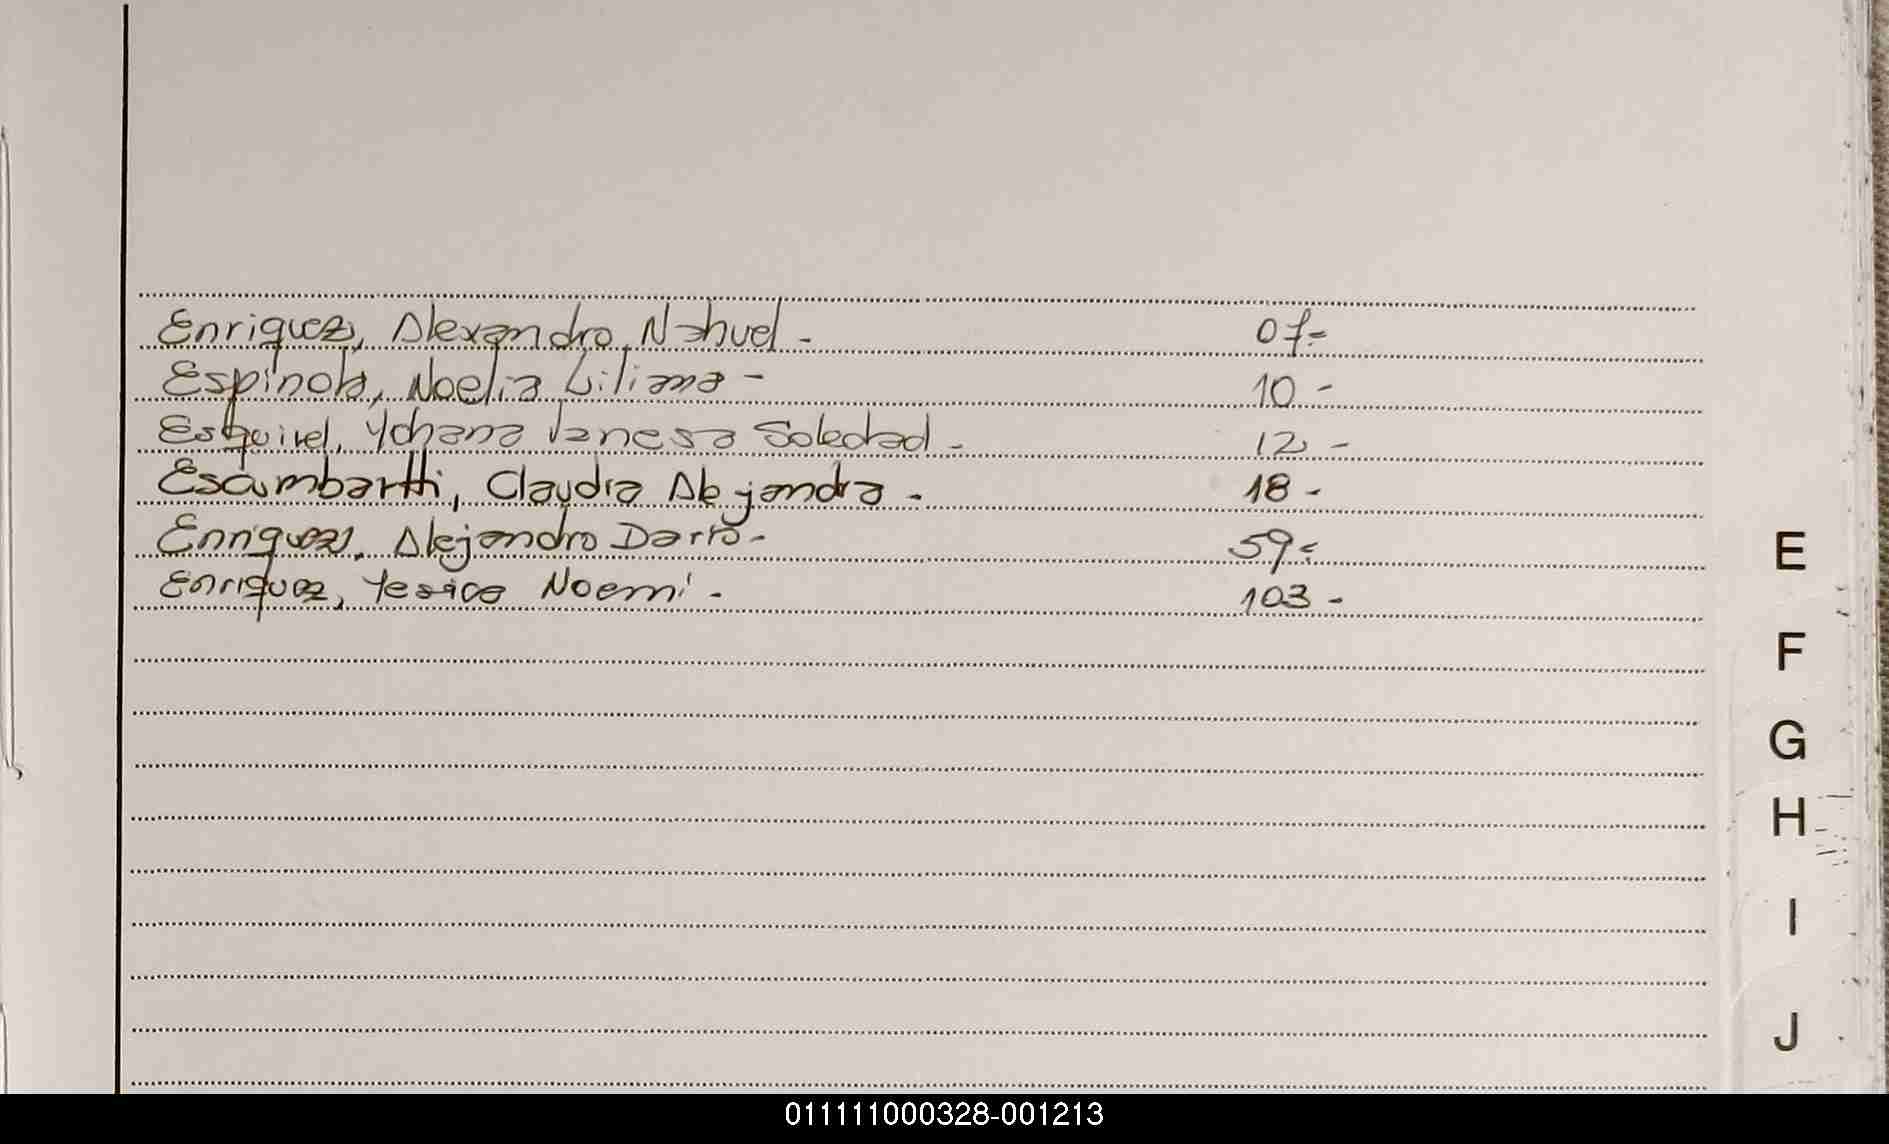 Enriquez, Alexandro Nahuel - 07-
Espínola, Noelia Liliana - 10 -
Esquivel, Yohana Vanesa Soledad - 12 -
Escumbartti, Claudia Alejandra - 18 -
Enriquez, Alejandro Dario - 59-
Enriquez, Yesica Noemí - 103 -
E
F
G
H
I
J
011111000328-001213